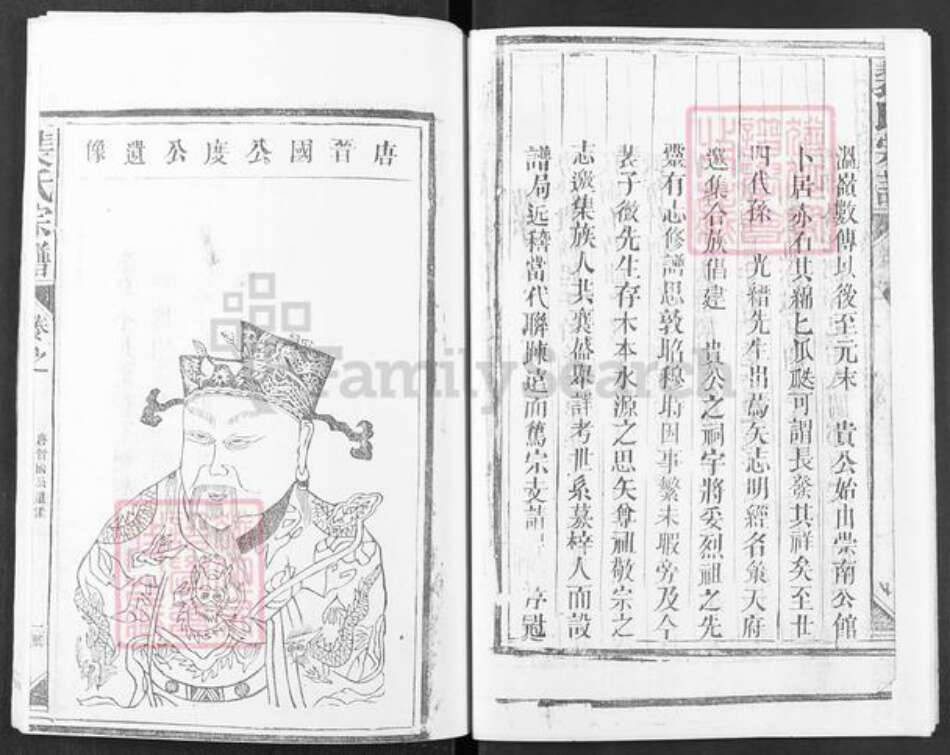 溫嶺數傳以後至元末 貴公始由崇南公館
卜居亦石其綿匕瓜瓞可謂長發其祥矣至廿
四代孫 光縉先生出焉矢志明經名策天府
選集合族倡建 貴公之祠宇將妥烈祖之先
靈有志修譜思敦昭穆坿因事繁未暇旁及今
裴子徵先生存木本水源之思矢尊祖敬宗之
志邀集族人共襄盛舉詳考世系募梓人而設
譜局近稽當代聯疎遠而篤宗支 序冠
唐晉國公度公遺像
裴氏宗譜
卷之一
唐晉國公遺像
FamilySearch